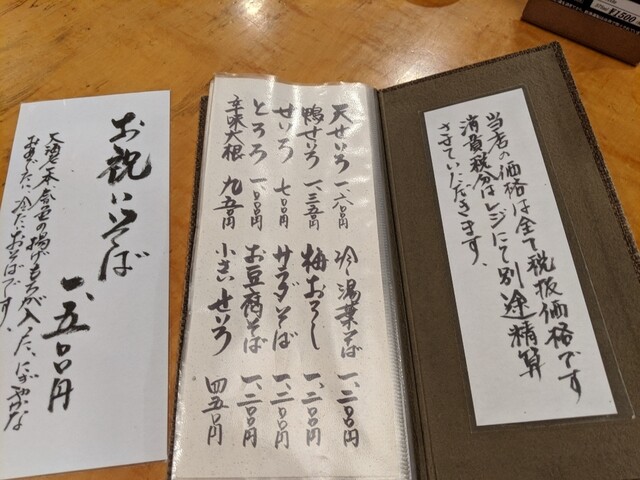 当店の価格は全て税抜価格です
消費税分はレジにて別途精算
させていただきます。
天せいろ 一、六〇〇円 冷湯葉そば 一、二〇〇円
鴨せいろ 一、三五〇円 梅おろし 一、二〇〇円
せいろ 七〇〇円 サラダそば 一、二〇〇円
とろろ 一、〇〇〇円 お豆腐そば 一、二〇〇円
辛味大根 九五〇円 小さいせいろ 四五〇円
お祝いそば
一、五〇〇円
の揚げもちが入った、にぎやかな
おめでたい、冷たいおそばです。
¥1500